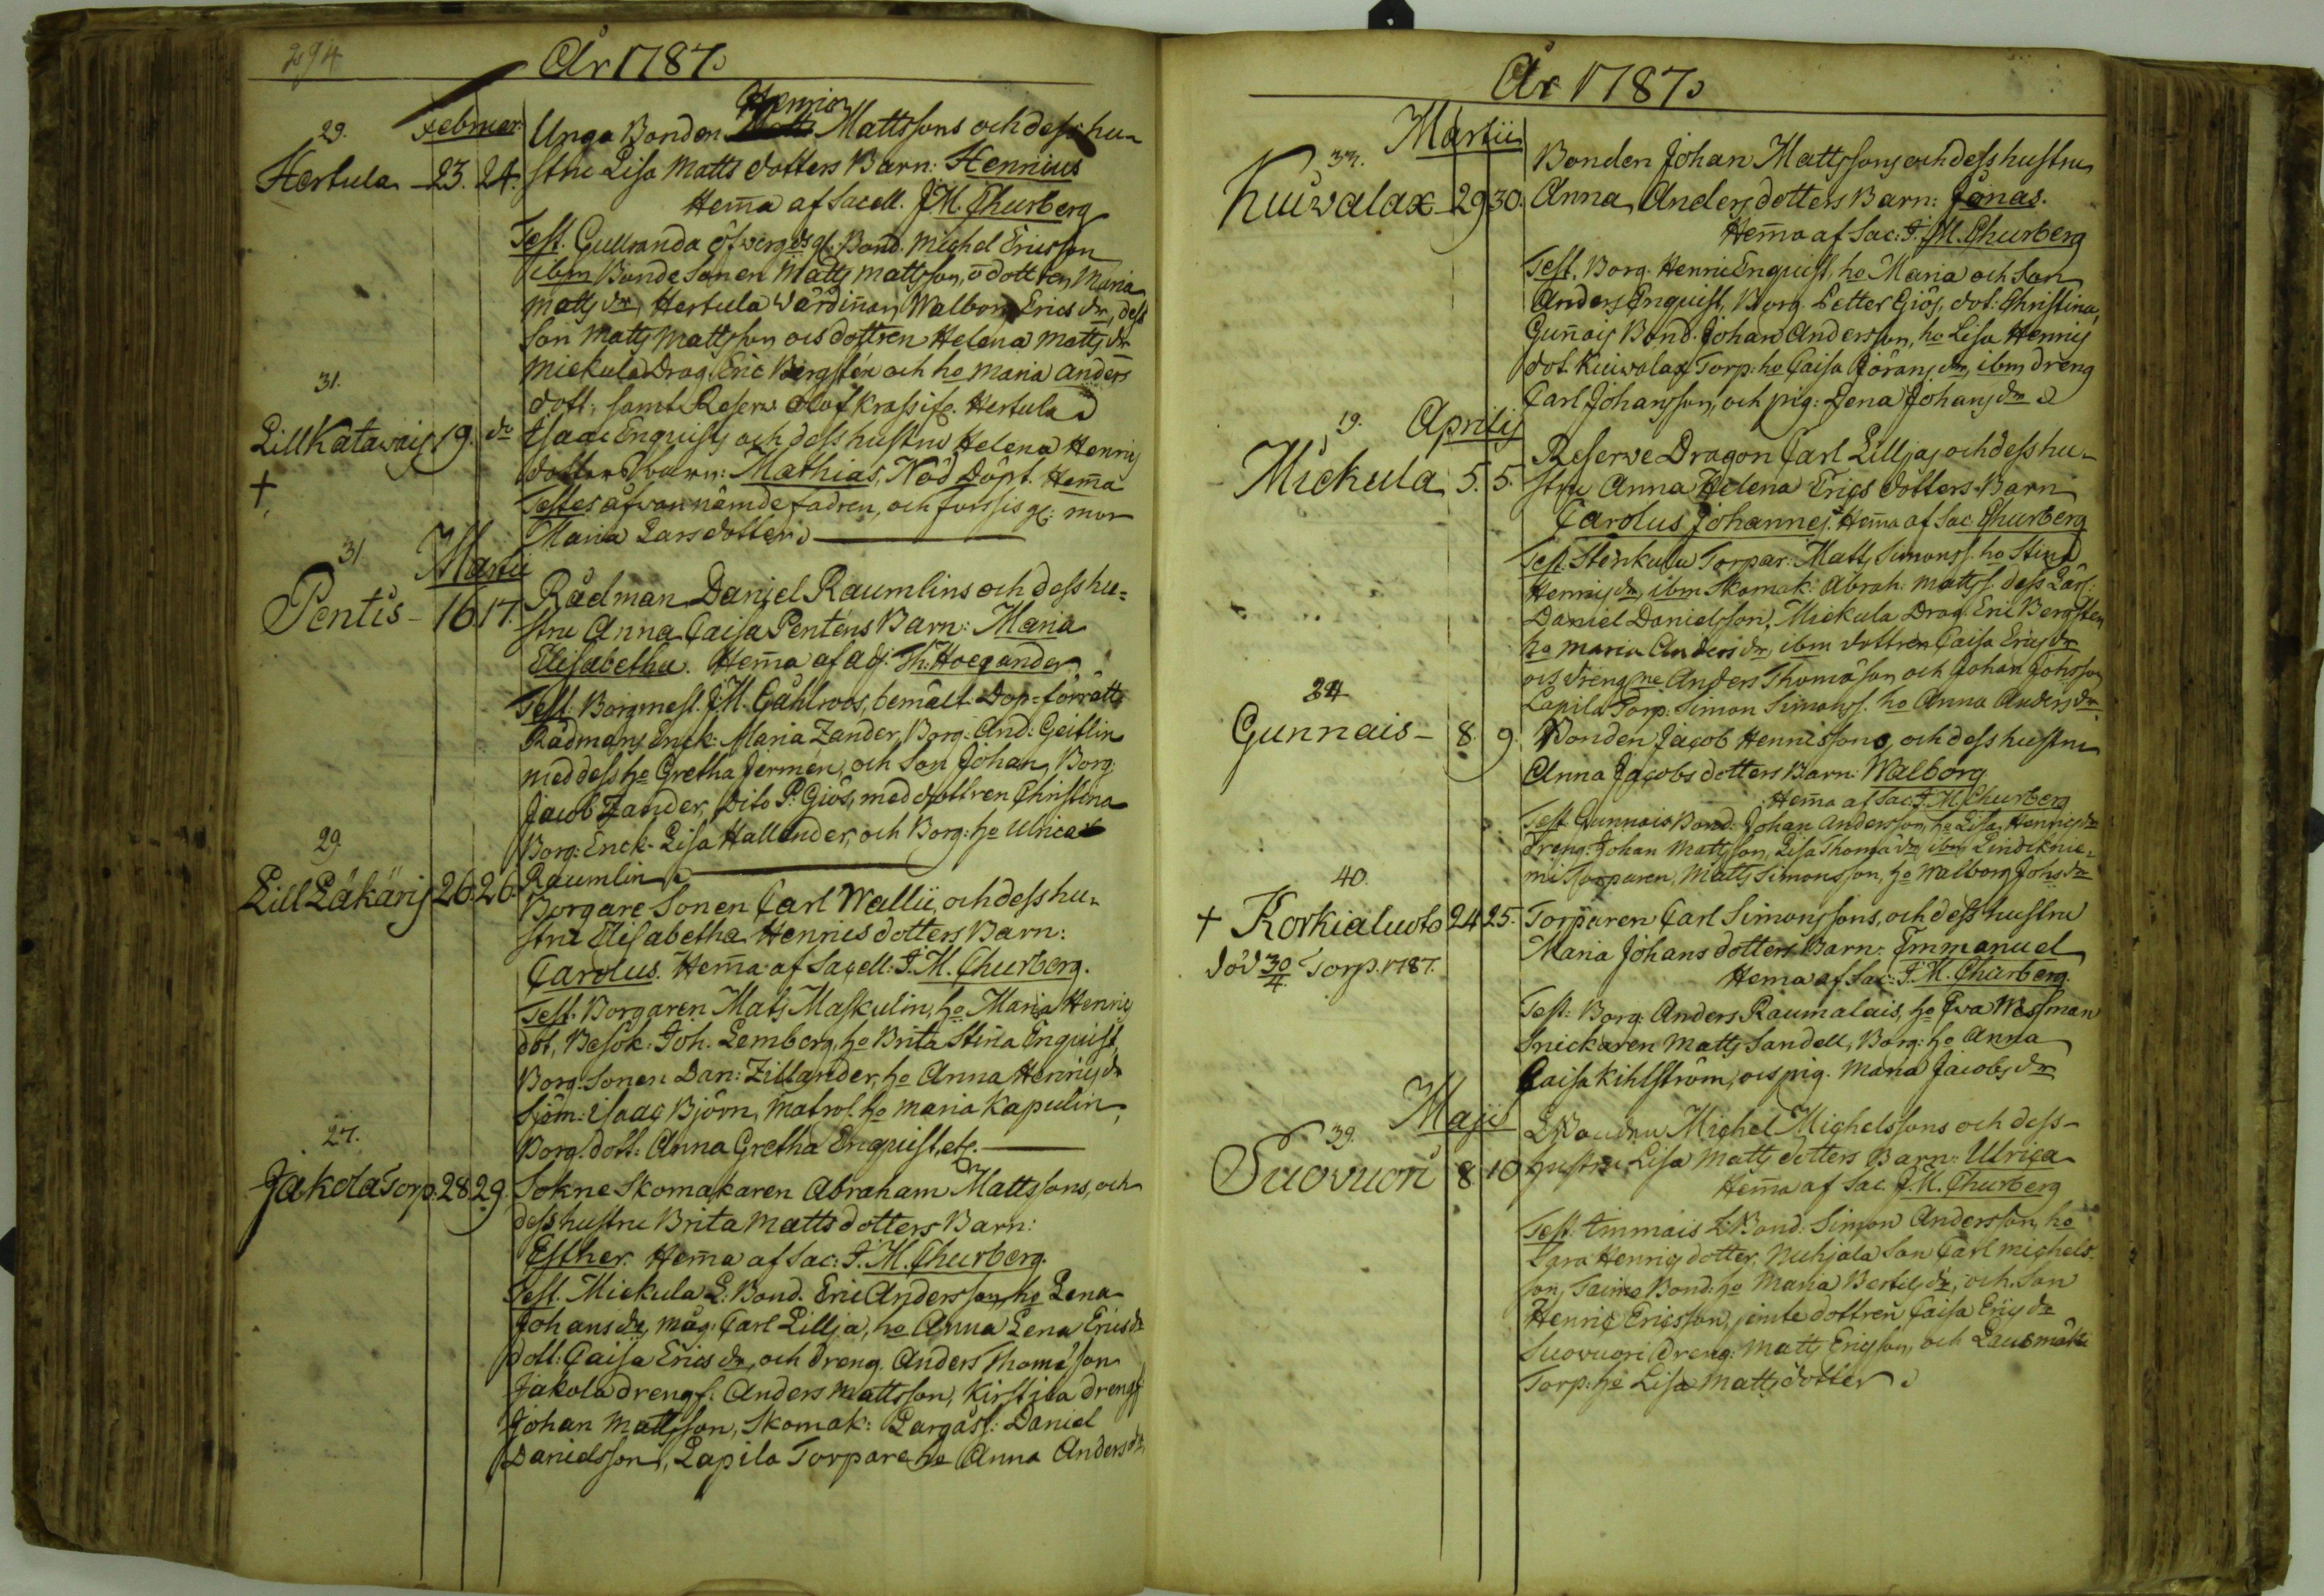 294
År 1787.
Februar:
29.
Hertula 23. 24.
Unga Bonden Henric Mattssons och dess hu-
stru Lisa Matts dotters Barn: Henricus
Hem̄a af Sacell. J. M. Churberg
Test. Gullranda Bond. Michel Ericsson
ibm Bonde Sonen Matts Mattsson, o dottren Maria
Matts dr, Hertula Värdin̄an Walborg Erics dr, dess
Son Matts Mattsson ock dottren Helena Matts dr
Mickula Drag. Eric Bergstén och ho Maria Anders
dott: samt Reserv. Olof Krassifz. Hertula
31.
Lill Katavais 19. do
+
Isaac Enquists och dess hustru Helena Henrics
dotters Barn: Mathias, Nöd Döpt. Hem̄a
Testes åfvannämde fadren, och mor
Maria Larsdotter.
31
Martii
Pentis - 16 17.
Rådman Daniel Raumlins och dess hu=
stru Anna Caisa Penténs Barn: Maria
Elisabetha. Hem̄a af adj. Th. Hoegander
Test: Borgmest. J. M. Gahlroos, bemält. Dop-förrätt:
Rådmans Enck: Maria Zander, Borg: And: Geitlin
med dess ho Gretha Jermen, och Son Johan, Borg.
Jacob Zander, Dito P: Giös, med dottren Christina
Borg: Enck. Lisa Hallander, och Borg: ho Ulrica
Raumlin
29
Lill Läkäris 26. 26.
Borgare Sonen Carl Wallii, och dess hu-
stru Elisabetha Henrics dotters Barn:
Carolus. Hem̄a af Sacell: J. M. Churberg.
Test. Borgaren Mats Maskulin, ho Maria Henrics
dot, Besök: Joh. Lemberg, ho Brita Stina Enquist,
Borg. Sonen Dan: Zillander, ho Anna Henrics dr
Sjöm: Isaac Björn, Matros. ho Maria Kapulin,
Borg. dott: Anna Gretha Enquist, etc.
27.
Jakola Torp. 28 29.
Sokne Skomakaren Abraham Mattssons, och
dess hustru Brita Mattsdotters Barn:
Esther. Hem̄a af Sac: J. M. Churberg.
Test. Mickula L. Bond. Eric Andersson, ho Lena
Johans dr, måg: Carl Lillja, ho Anna Lena Erics dr
dott: Caisa Erics dr, och dreng. Anders Thomasson
Jakola drengs: Anders Mattsson, Kirstila drengs
Johan Mattsson, Skomak: Daniel
Danielsson, Lapila Torpare ho Anna Anders dr
År 1787.
Martii
33.
Kuiwalax 29 30.
Bonden Johan Mattssons och dess hustru
Anna Anders dotters Barn: Jonas.
Hem̄a af Sac: J. M. Churberg
Test. Borg. Henric Enquist, ho Maria och Son
Anders Enquist, Borg. Petter Giös, dot: Christina,
Gun̄ais Bond. Johan Andersson, ho Lisa Henrics
dot. Kuiwalax Torp: ho Caisa Jörans dr, ibm dreng
Carl Johansson, och pig: Lena Johans dr
19. Aprilis
Mickula 5. 5.
Reserve Dragon Carl Lilljas och dess hu-
stru Anna Helena Erics dotters Barn
Carolus Johannes. Hem̄a af Sac Churberg
Test. Stenkulla Torpar: Matts Simonss. ho Stina
Henrics dr, ibm Skomak: Abrah. Mattss. dess Lärl:
Daniel Danielsson, Mickula Drag. Eric Bergstén,
ho Maria Anders dr, ibm dottren Caisa Erics dr
ock drengne Anders Thomasson och Johan Johsson,
Lapila Torp. Simon Simonss. ho Anna Anders dr
Gunnais - 8. 9.
Bonden Jacob Henricssons, och dess hustru
Anna Jacobs dotters Barn: Walborg
Hem̄a af Sac: J. M. Churberg
Test. Gunnais Bond: Johan Andersson, ho Lisa Henrics dr
Dreng: Johan Mattsson, Lisa Thoma dr, ibm Lindiknie-
mi Torparen, Matts Simonsson, ho Walborg Johs dr
40.
+ Korkialuoto 24 25.
död 30/4 Torp. 1787.
Torparen Carl Simonssons, och dess hustru
Maria Johans dotters Barn: Emmanuel
Hem̄a af Sac: J. M. Churberg.
Test: Borg. Anders Raumalais, ho Eva Wessman
Snickaren Matts Sandell, Borg: ho Anna
Caisa Kihlström, ock pig. Maria Jacobs dr
Maji
39.
Suovuori 8 10
L. Bonden Michel Michelssons och dess
hustru Lisa Matts dotters Barn: Ulrica
Hem̄a af Sac. J. M. Churberg
Test. Immais L: Bond: Simon Andersson, ho
Sara Henrics dotter, Nuhjala Son Carl Michels-
son, Taimo Bond: ho Maria Bertils dr, och Son
Henric Ericsson, jemte dottren Caisa Erics dr
Suovuori dreng: Matts Ericsson, och Lausmäki
Torp: ho Lisa Mattsdotter